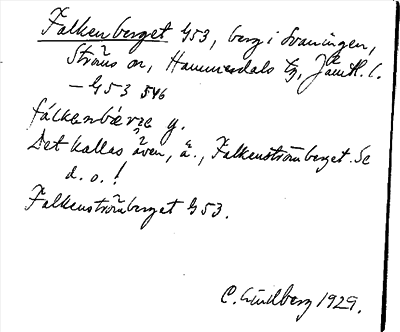 Falkenberget G53, berg i Svaningen,
Ströms sn, Hammerdals tg, Jämtl. l.
– G53 546
fálkenbærʒe y.
Det kallas även, å., Falkenströmberget. Se
d. o.!
Falkenströmberget G53.
C. Lindberg 1929.